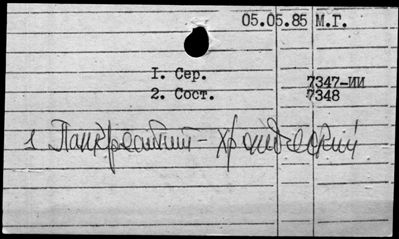 05.05.85 М.Г.
I. Сер. 7347-ИИ
2. Сост. 7348
1 Панкреатит - хронический